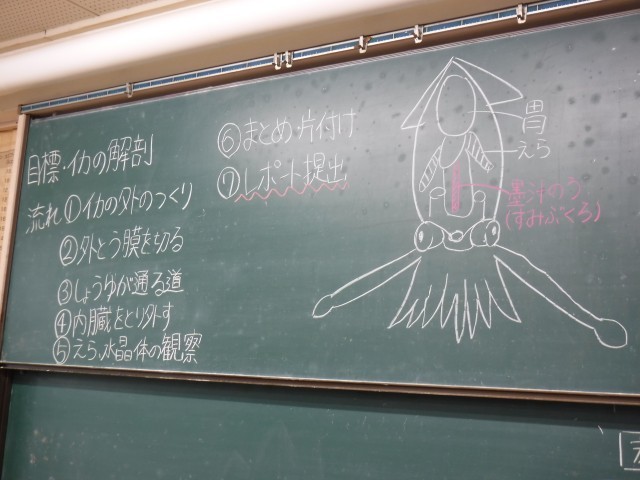 目標・イカの解剖
流れ ①イカの外のつくり
②外とう膜を切る
③しょうゆが通る道
④内臓をとり外す
⑤えら、水晶体の観察
⑥まとめ・片付け
⑦レポート提出
胃
えら
墨汁のう
(すみぶくろ)